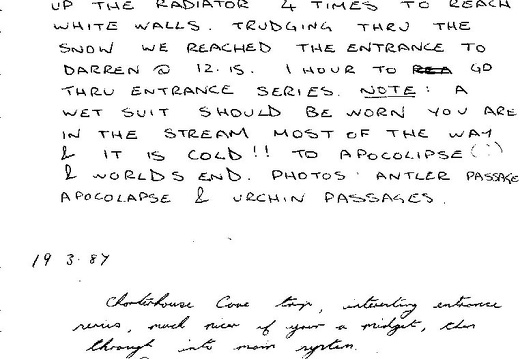 UP THE RADIATOR 4 TIMES TO REACH
WHITE WALLS. TRUDGING THRU THE
SNOW WE REACHED THE ENTRANCE TO
DARREN @ 12.15. 1 HOUR TO GO
THRU ENTRANCE SERIES. NOTE: A
WET SUIT SHOULD BE WORN YOU ARE
IN THE STREAM MOST OF THE WAY
& IT IS COLD!! TO APOCOLIPSE (?)
& WORLDS END. PHOTOS: ANTLER PASSAGE
APOCOLAPSE & URCHIN PASSAGES.
19.3.87
Charterhouse Cave trip, interesting entrance
series, much nicer if your a midget, then
through into main system.